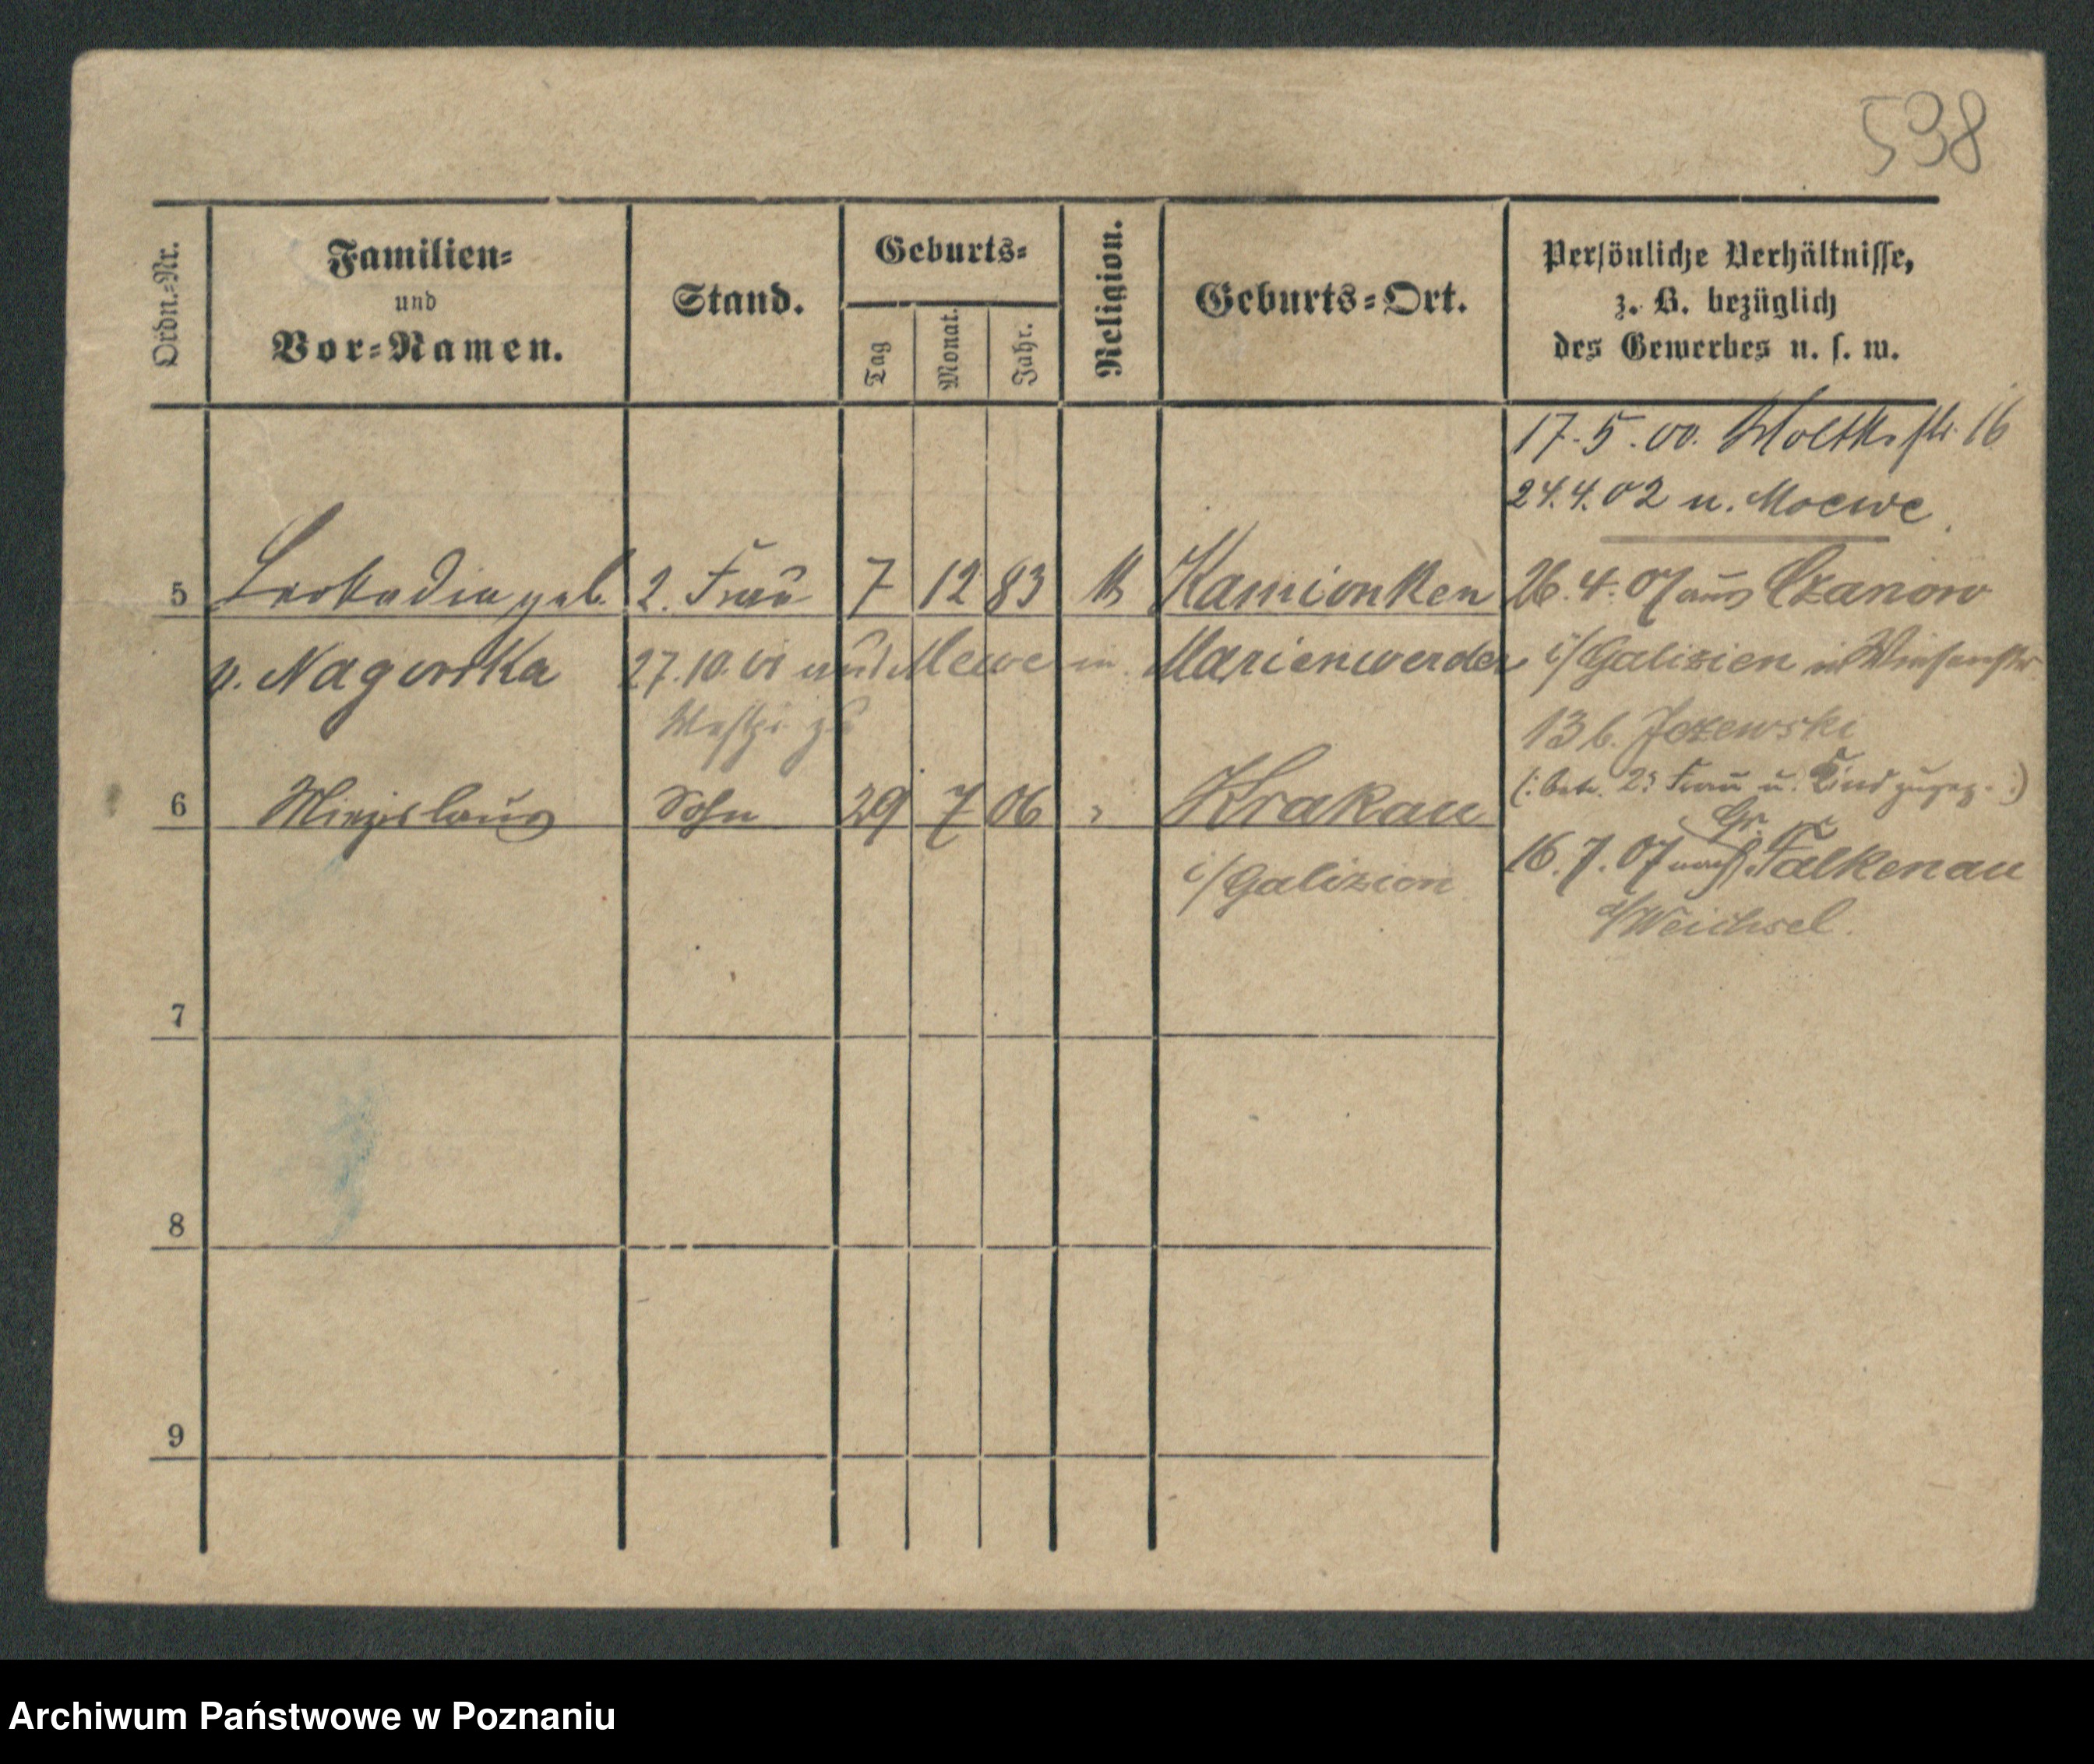 538
Ordn.-Nr.
Familien-
und
Vor-Namen.
Stand.
Geburts-
Tag
Monat.
Jahr.
Religion.
Geburts-Ort.
Persönliche Verhältnisse,
z. B. bezüglich
des Gewerbes u. s. w.
17.5.00. Moltkestr. 16
24.4.02 n. Moewe
5 Leokadia geb. 2. Frau 7 12 83 K Kamionken 26.4.07 aus Czanow
v. Nagorska 27.10.01 aus Mewe in Marienwerder i/Galizien in Wiesenstr.
Westpr. zu 13 b. Jezewski
(: betr. 2. Frau u. Kind zugez. :)
6 Miezislaus Sohn 29 7 06 " Krakau 16.7.07 nach Gr. Falkenau
i/Galizien a/Weichsel.
7
8
9
Archiwum Państwowe w Poznaniu